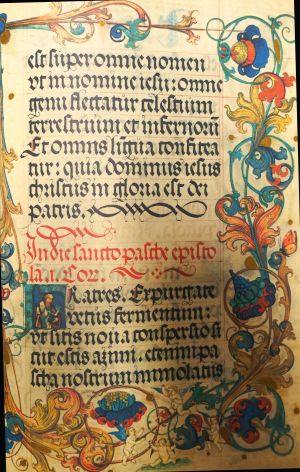 est super omne nomen
vt in nomine iesu: omne
genu flectatur celestium
terrestrium et infernorū
Et omnis lingua confitea
tur: quia dominus iesus
christus in gloria est dei
patris.
In die sancto pasche episto
la. i. Cor.
Fratres. Expurgate
vetus fermentum:
vt sitis noua conspersio si
cut estis azimi. etenim pa
scha nostrum immolatus